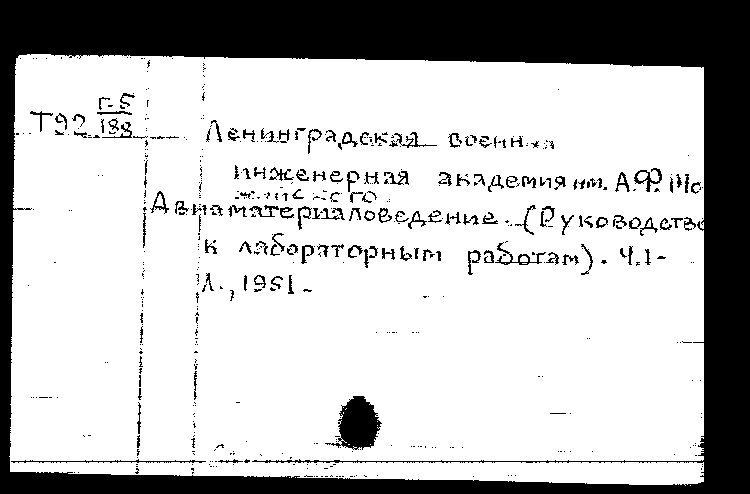 Г-5
Т92 188
Ленинградская военная
инженерная академия им. А.Ф. Мо
жайского
Авиаматериаловедение. (Руководство
к лабораторным работам). Ч.1-
Л., 1951.